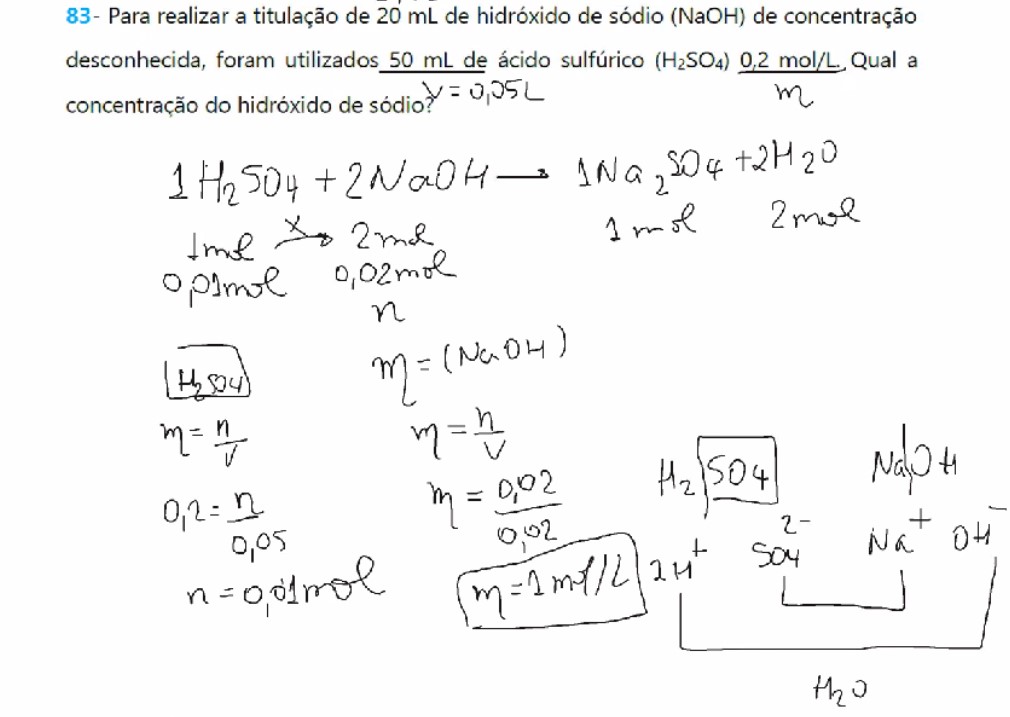 83- Para realizar a titulação de 20 mL de hidróxido de sódio (NaOH) de concentração
desconhecida, foram utilizados 50 mL de ácido sulfúrico (H₂SO₄) 0,2 mol/L. Qual a
concentração do hidróxido de sódio?
V = 0,05L
m
1H₂SO₄ + 2NaOH → 1Na₂SO₄ + 2H₂O
1mol x 2mol 1mol 2mol
0,01mol 0,02mol
n
H₂SO₄
m = (NaOH)
m = n/V
m = n/V
0,2 = n/0,05
m = 0,02/0,02
n = 0,01mol
m = 1mol/L
H₂SO₄ NaOH
2H⁺ SO₄²⁻ Na⁺ OH⁻
H₂O